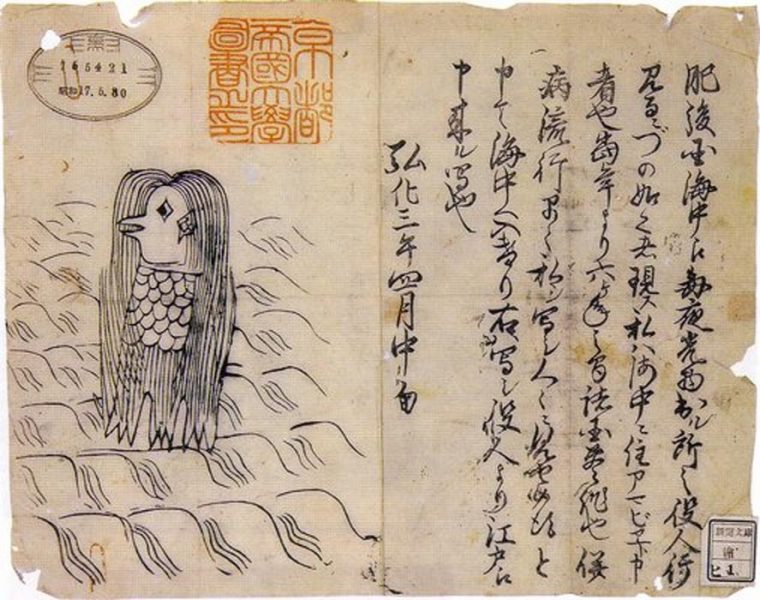 165421
昭和17.5.30
京都
帝國大學
圖書之印
肥後国海中江毎夜光物出ル所之役人行
見るニづの如く者現ス私ハ海中ニ住アマビヱト申
者也当年より六ヶ年之間諸国豊作也併
病流行早々私ヲ写シ人々ニ見せ候得と
申て海中へ入けり右写シ役人より江戸江
申来ル写也
弘化三年四月中旬
新聞文庫